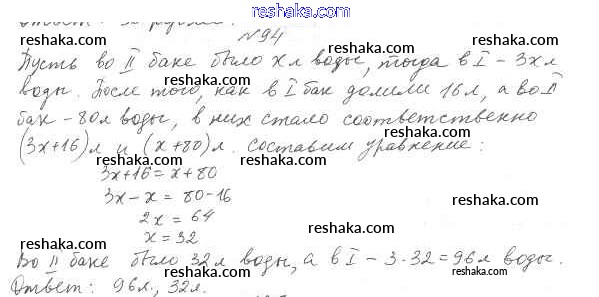 reshaka.com
№94
Пусть во II баке было x л воды, тогда в I – 3x л
reshaka.com reshaka.com
воды. После того, как в I бак долили 16 л, а во II
reshaka.com reshaka.com reshaka.com
бак – 80 л воды, в них стало соответственно
(3x+16) л и (x+80) л. Составим уравнение:
reshaka.com reshaka.com reshaka.com
3x+16 = x+80
3x-x = 80-16
reshaka.com
2x = 64
reshaka.com
x = 32
reshaka.com
Во II баке было 32 л воды, а в I – 3·32=96 л воды.
reshaka.com reshaka.com reshaka.com
Ответ: 96 л, 32 л.